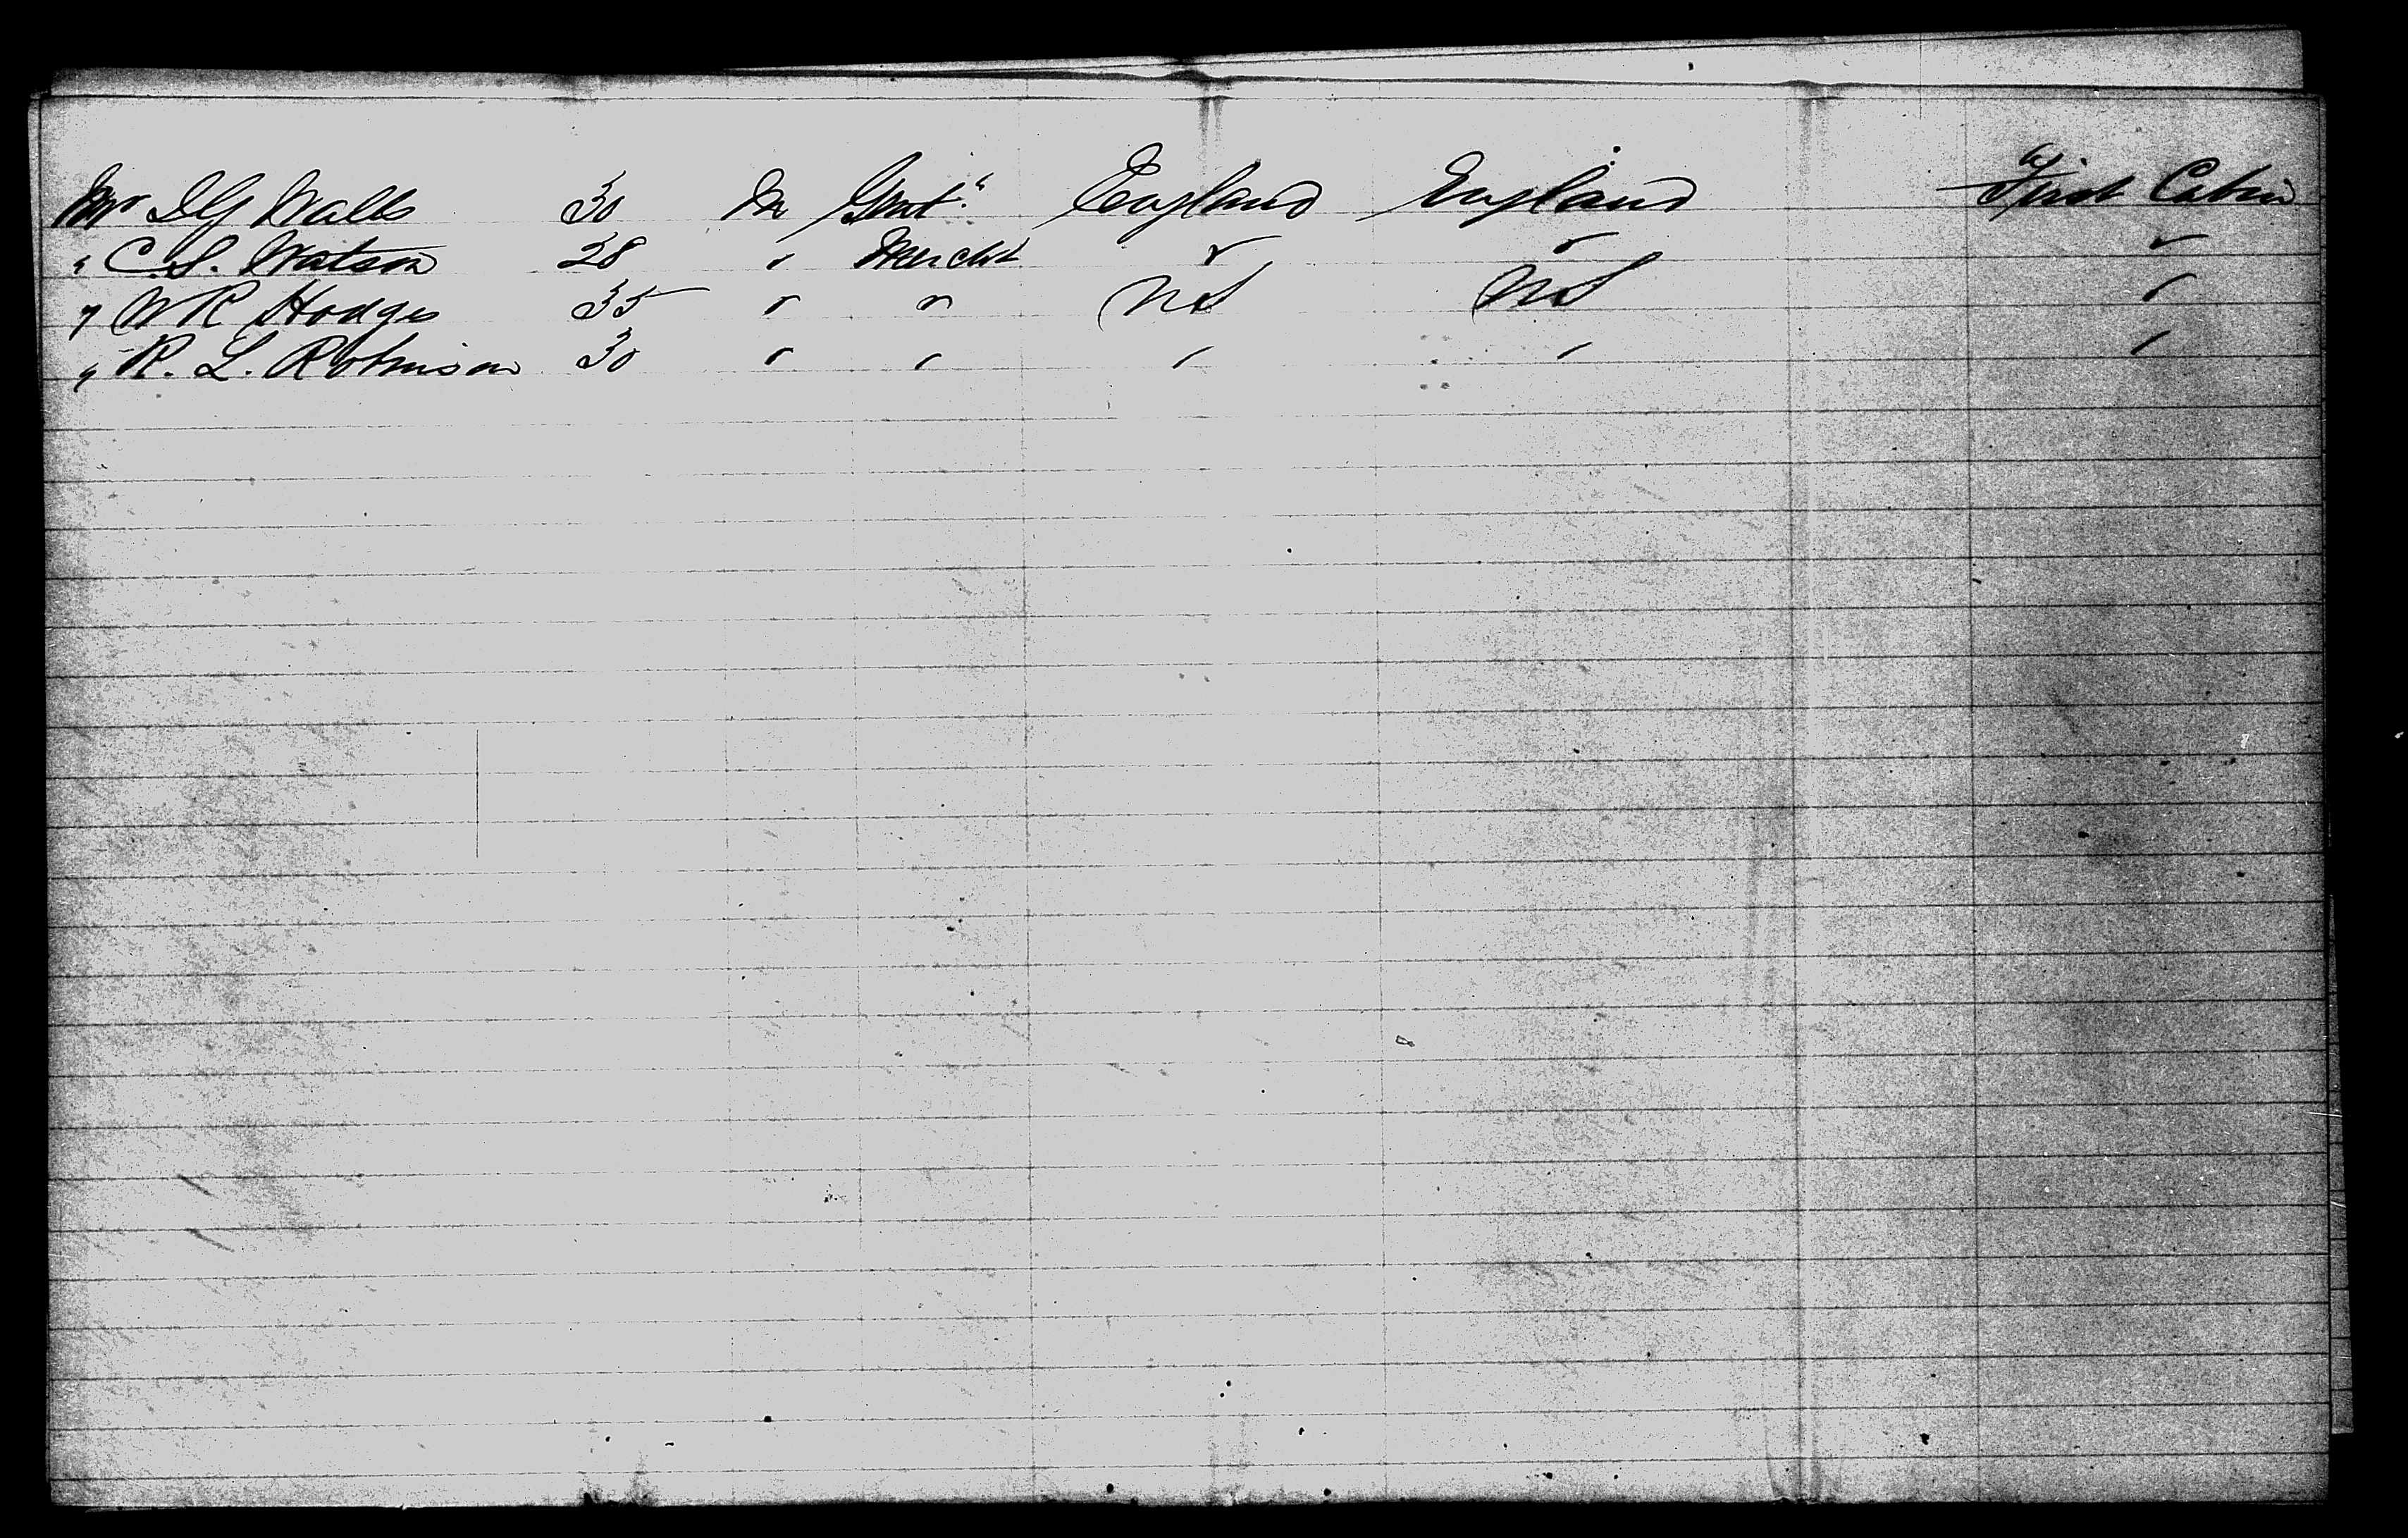 Mr I G Walls 30 M Gent. England England First Cabin
" C. S. Watson 28 " Mercht " " "
" W R Hodges 35 " " U S U S "
" R. L. Robinson 30 " " " " "